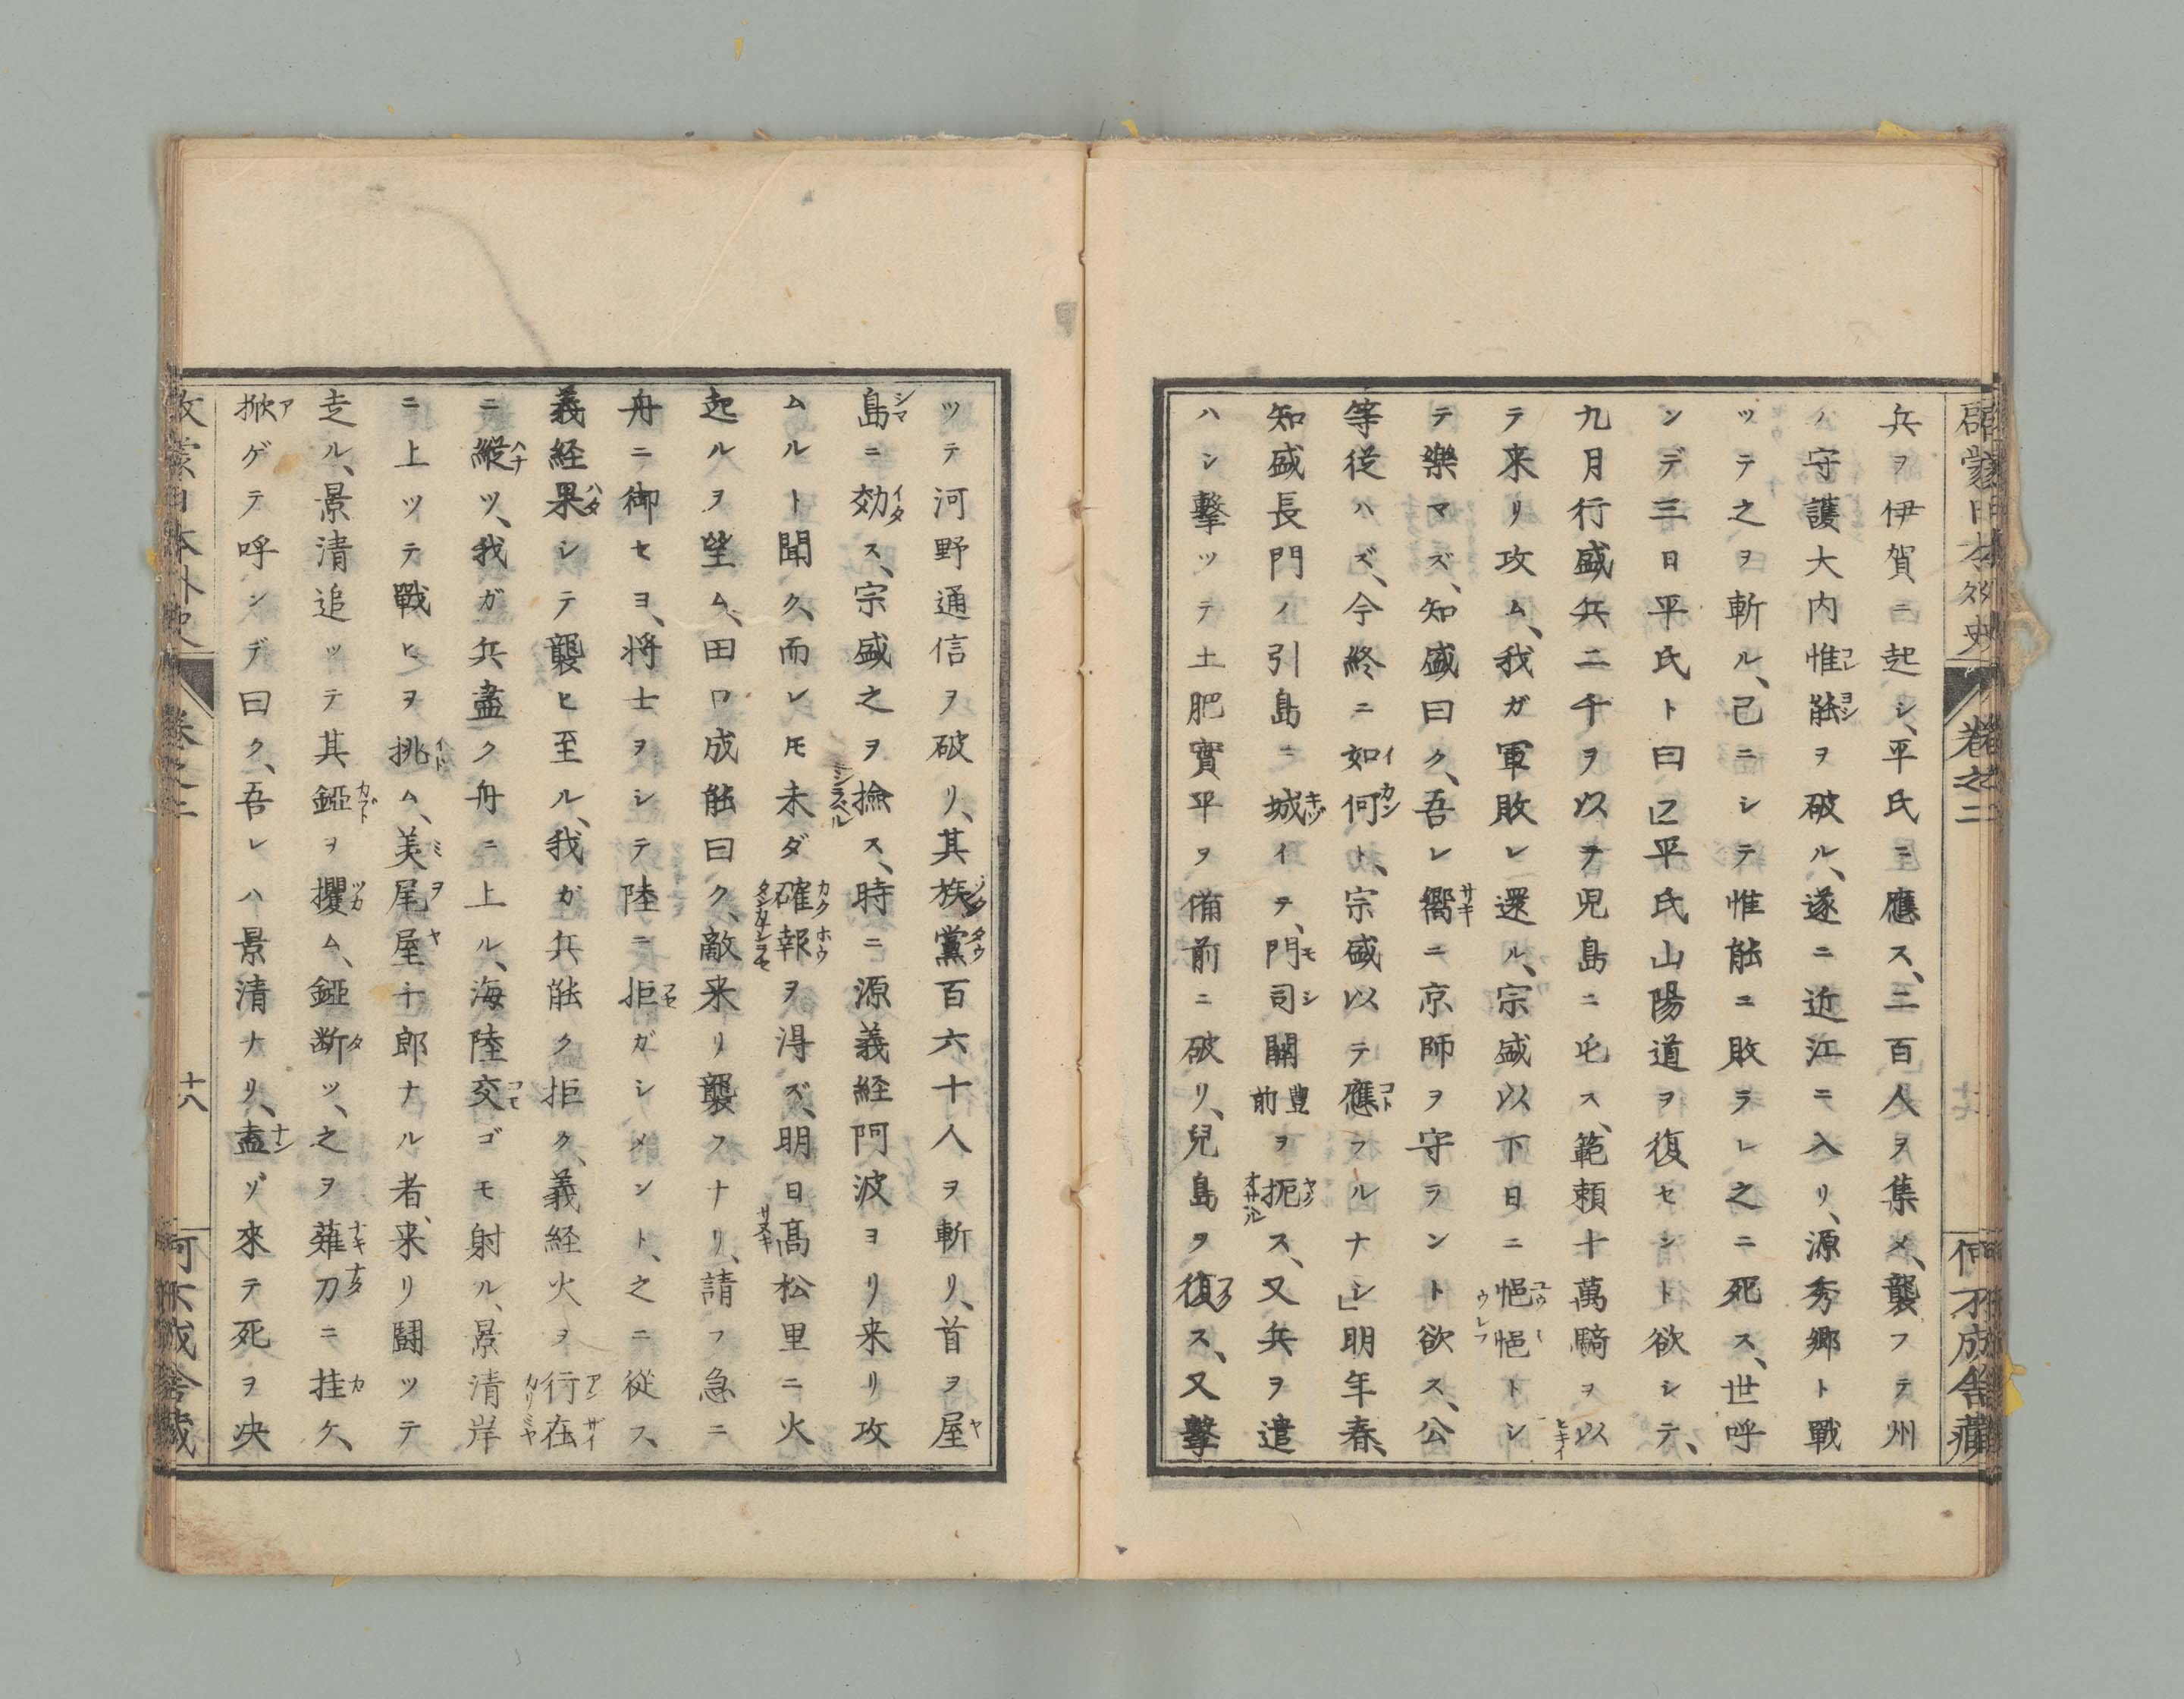 啓蒙日本外史 巻之二 何不成舎藏
兵ヲ伊賀ニ起シ、平氏ニ應ス、二百人ヲ集メ、襲フテ州
ノ守護大内惟能ヲ破ル、遂ニ近江ニ入リ、源秀郷ト戰
ツテ之ヲ斬ル、己ニシテ惟能ニ敗ラレ之ニ死ス、世呼
ンデ三日平氏ト曰平氏山陽道ヲ復セシト欲シテ、
九月行盛兵二千ヲ以テ児島ニ屯ス、範頼十萬騎ヲ以
テ来リ攻ム、我ガ軍敗レ還ル、宗盛以下日ニ悒悒トシ
テ樂マズ、知盛曰ク、吾レ嚮ニ京師ヲ守ラント欲ス、公
等従ハズ、今終ニ如何ト、宗盛以テ應フルナシ」明年春、
知盛長門ノ引島ニ城イテ、門司關豊前ヲ扼ス、又兵ヲ遣
ハシ撃ツテ土肥實平ヲ備前ニ破リ、兒島ヲ復ス、又撃
ツテ河野通信ヲ破リ、其族黨百六十人ヲ斬リ、首ヲ屋
島ニ効ス、宗盛之ヲ撿ス、時ニ源義経阿波ヨリ来リ攻
ムルト聞ク、而レ𪜈未ダ確報ヲ得ズ、明日髙松里ニ火
起ルヲ望ム、田口成能曰ク、敵来リ襲フナリ、請フ急ニ
舟ニ御セヨ、将士ヲシテ陸ニ拒ガシメント、之ニ従フ、
義経果シテ襲ヒ至ル、我ガ兵能ク拒ク、義経火ヲ行在
ニ縦ツ、我ガ兵盡ク舟ニ上ル、海陸交ゴモ射ル、景清岸
ニ上ツテ戰ヒヲ挑ム、美尾屋十郎ナル者、来リ闘ツテ
走ル、景清追ッテ其錏ヲ攫ム、錏断ツ、之ヲ薙刀ニ挂ケ、
掀ゲテ呼ンデ曰ク、吾レハ景清ナリ、盍ゾ來テ死ヲ决
啓蒙日本外史 巻之二 十八 何不成舎藏